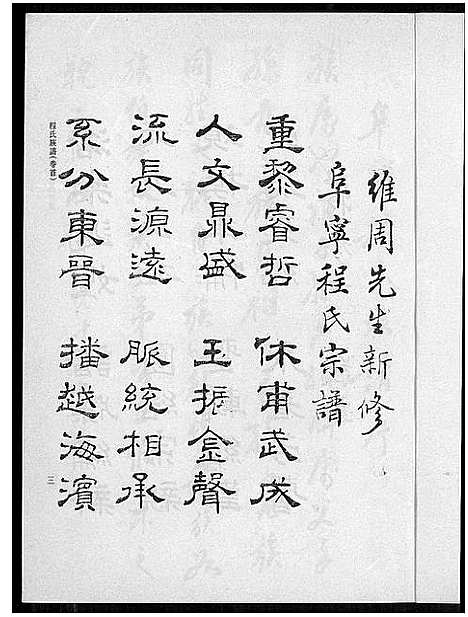 維周先生新修
阜寧程氏宗譜
重黎睿哲 休甫武成
人文鼎盛 玉振金聲
流長源遠 脈統相承
系分東晉 播越海濱
程氏族譜(卷首)
三